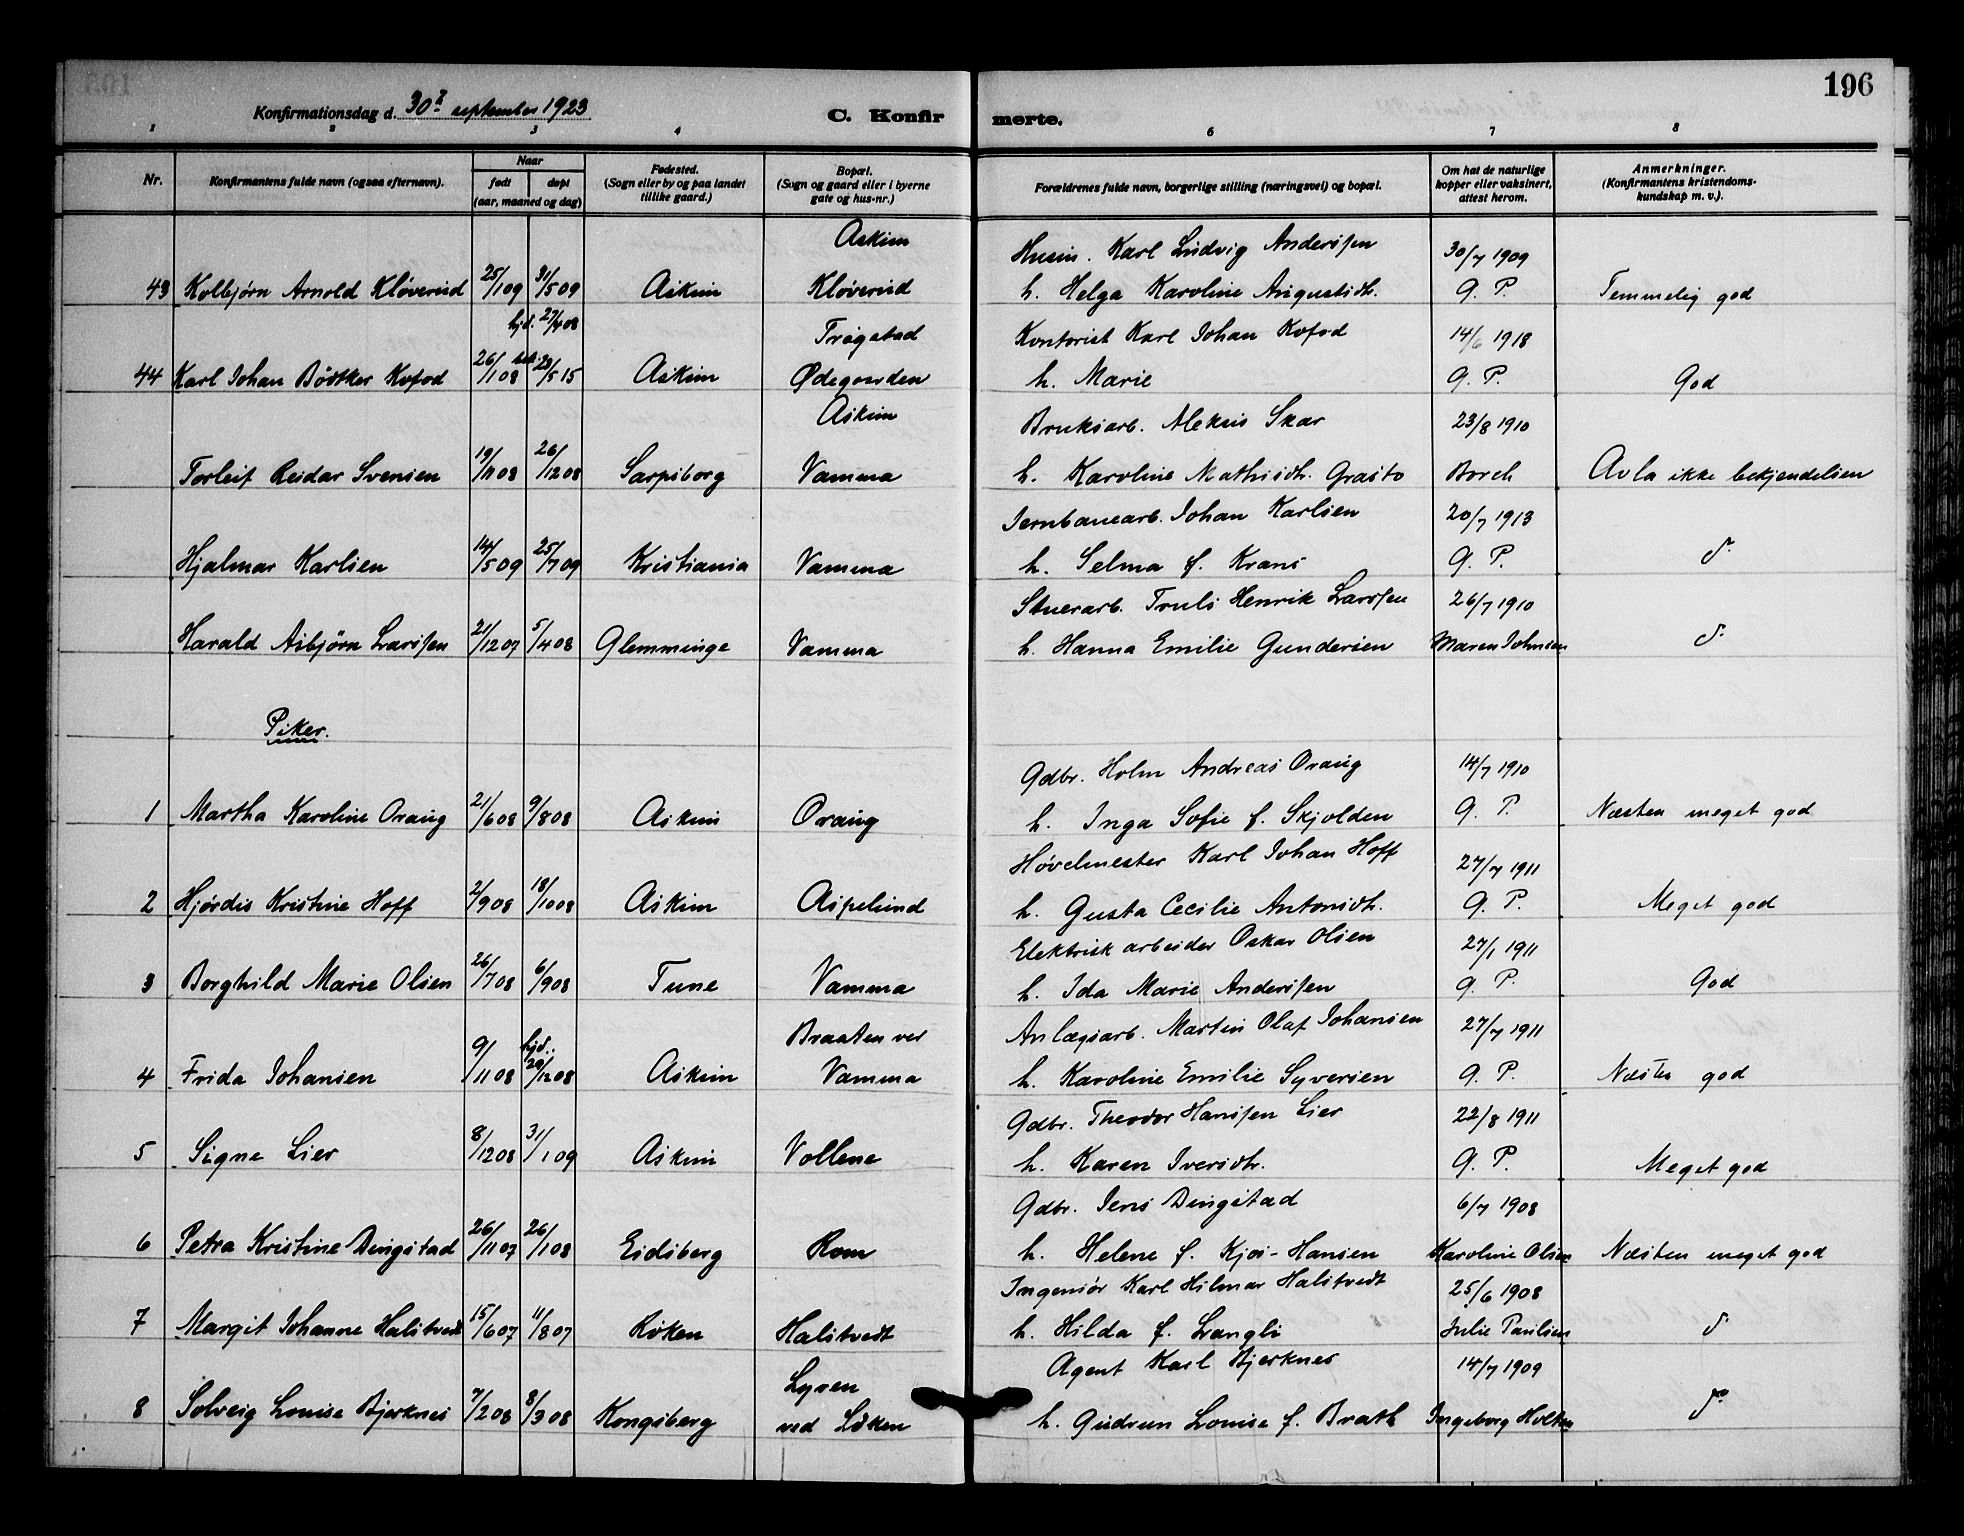 196
Konfirmationsdag d. 30te september 1923
C. Konfirmerte.
1 2 3 4 6 7 8
Nr.
Konfirmantens fulde navn (ogsaa efternavn).
Naar
født
døpt
(aar, maaned og dag)
Fødested.
(Sogn eller by og paa landet
tillike gaard.)
Bopæl.
(Sogn og gaard eller i byerne
gate og hus-nr.)
Forældrenes fulde navn, borgerlige stilling (næringsvei) og bopæl.
Om hat de naturlige
kopper eller vaksinert,
attest herom.
Anmerkninger.
(Konfirmantens kristendoms-
kundskap m. v.).
Askim Husm. Karl Ludvig Anderssen 30/7 1909
43 Kolbjørn Arnold Kløverud 25/1 09 31/5 09 Askim Kløverud h. Helga Karoline Augustsdt. G. P. Temmelig god
hjd. 27/4 08 Trøgstad Kontorist Karl Johan Kofod 14/6 1918
44 Karl Johan Bödtker Kofod 26/1 08 23/5 15 Askim Ødegaarden h. Marie G. P. God
Askim Bruksarb. Aleksis Skar 23/8 1910
Torleif Reidar Svensen 19/11 08 26/12 08 Sarpsborg Vamma h. Karoline Mathisdt. Grasto Borch Avla ikke bekjendelsen
Jernbanearb. Johan Karlsen 20/7 1913
Hjalmar Karlsen 14/5 09 25/7 09 Kristiania Vamma h. Selma f. Krans G. P. do
Stuerarb. Truls Henrik Larssen 26/7 1910
Harald Asbjørn Larssen 21/12 07 5/4 08 Glemminge Vamma h. Hanna Emilie Gundersen Maren Johnsen do
Piker.
Gdbr. Holm Andreas Oraug 14/7 1910
1 Martha Karoline Oraug 21/6 08 9/8 08 Askim Oraug h. Inga Sofie f. Skjolden G. P. Næsten meget god
Høvelmester Karl Johan Hoff 27/7 1911
2 Hjørdis Kristine Hoff 2/9 08 18/10 08 Askim Aspelund h. Gusta Cecilie Antonsdt. G. P. Meget god
Elektrisk arbeider Oskar Olsen 27/1 1911
3 Borghild Marie Olsen 26/7 08 6/9 08 Tune Vamma h. Ida Marie Anderssen G. P. God
hjd. Braaten ver Anlægsarb. Martin Olaf Johansen 27/7 1911
4 Frida Johansen 9/11 08 20/12 08 Askim Vamma h. Karoline Emilie Syversen G. P. Næsten god
Gdbr. Theodor Hanssen Lier 22/8 1911
5 Signe Lier 8/12 08 31/1 09 Askim Vollene h. Karen Iversdt. G. P. Meget god
Gdbr. Jens Dingstad 6/7 1908
6 Petra Kristine Dingstad 26/11 07 26/1 08 Eidsberg Rom h. Helene f. Kjos-Hansen Karoline Olsen Næsten meget god
Ingeniør Karl Hilmar Halstvedt 25/6 1908
7 Margit Johanne Halstvedt 15/6 07 11/8 07 Røken Halstvedt h. Hilda f. Langli Julie Paulsen do
Lyven Agent Karl Bjerknes 14/7 1909
8 Solveig Louise Bjerknes 7/2 08 8/3 08 Kongsberg ved Løken h. Gudrun Louise f. Brath Ingeborg Holten do